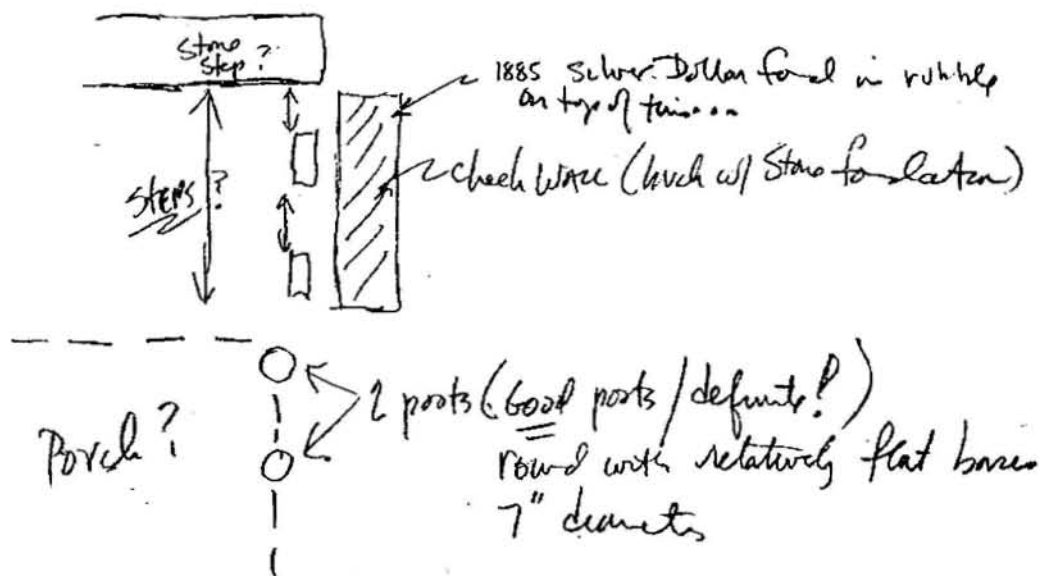 Stone
Step?
1885 Silver Dollar found in rubble
on top of this...
Cheek Wall (brick w/ Stone foundation)
STEPS?
2 posts (Good posts/definite!)
Porch?
round with relatively flat bases
7" diameter